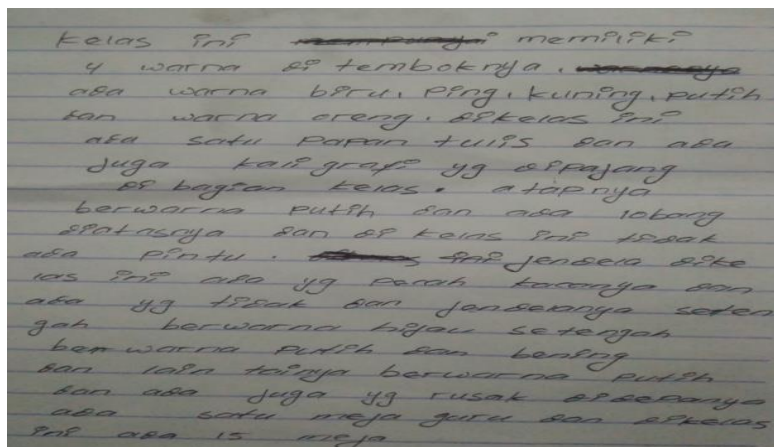 Kelas ini memiliki
4 warna di temboknya.
ada warna biru, Ping, kuning, putih
dan warna oreng. dikelas ini
ada satu papan tulis dan ada
juga kaligrafi yg dipajang
di bagian kelas. atapnya
berwarna putih dan ada lobang
diatasnya dan di kelas ini tidak
ada pintu. ini jendela dike
las ini ada yg pecah kacanya dan
ada yg tidak dan jendelanya seten
gah berwarna hijau setengah
berwarna putih dan bening
dan lain tainya berwarna putih
dan ada juga yg rusak didepanya
ada satu meja guru dan dikelas
ini ada 15 meja